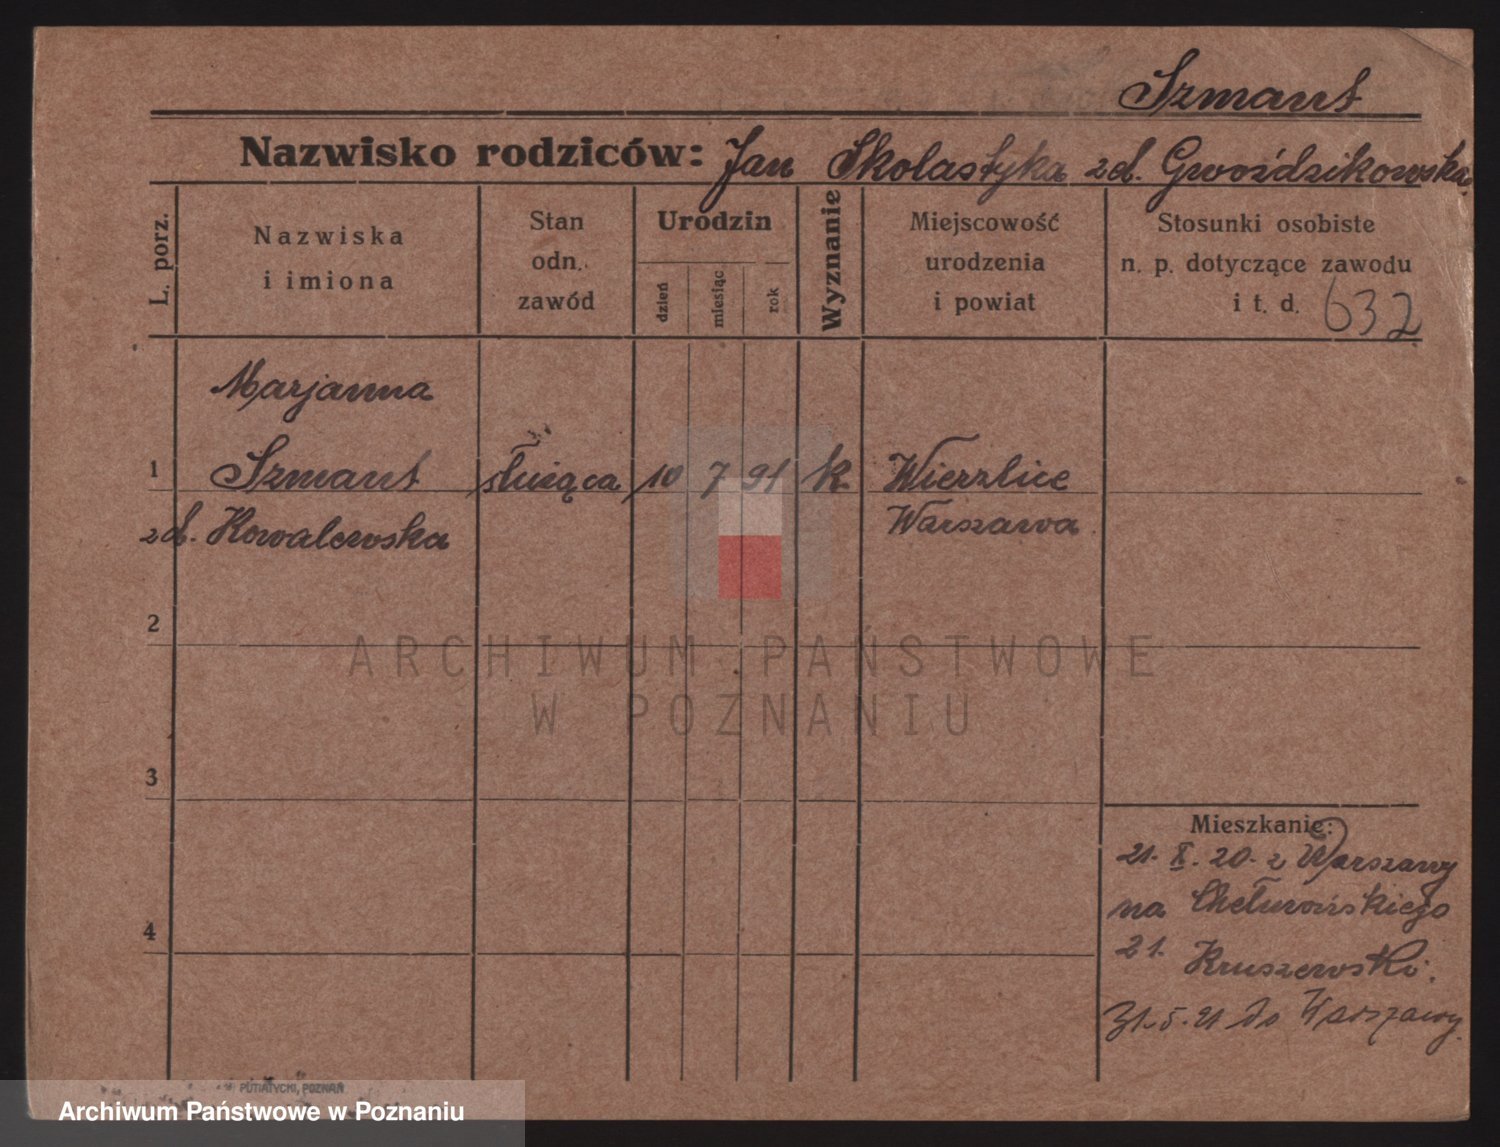 Szmant
Nazwisko rodziców: Jan Skolastyka zd. Gwoździkowska
L. porz.
Nazwiska
i imiona
Stan
odn.
zawód
Urodzin
dzień
miesiąc
rok
Wyznanie
Miejscowość
urodzenia
i powiat
Stosunki osobiste
n. p. dotyczące zawodu
i t. d. 632
Marjanna
1 Szmant służąca 10 7 91 k. Wierzbice
zd. Kowalewska Warszawa
2
3
4
Mieszkanie:
21. X. 20. z Warszawy
na Chełmońskiego
21. Kruszewski.
31.5.21 do Warszawy.
ARCHIWUM PAŃSTWOWE
W POZNANIU
PUTIATYCKI, POZNAŃ
Archiwum Państwowe w Poznaniu